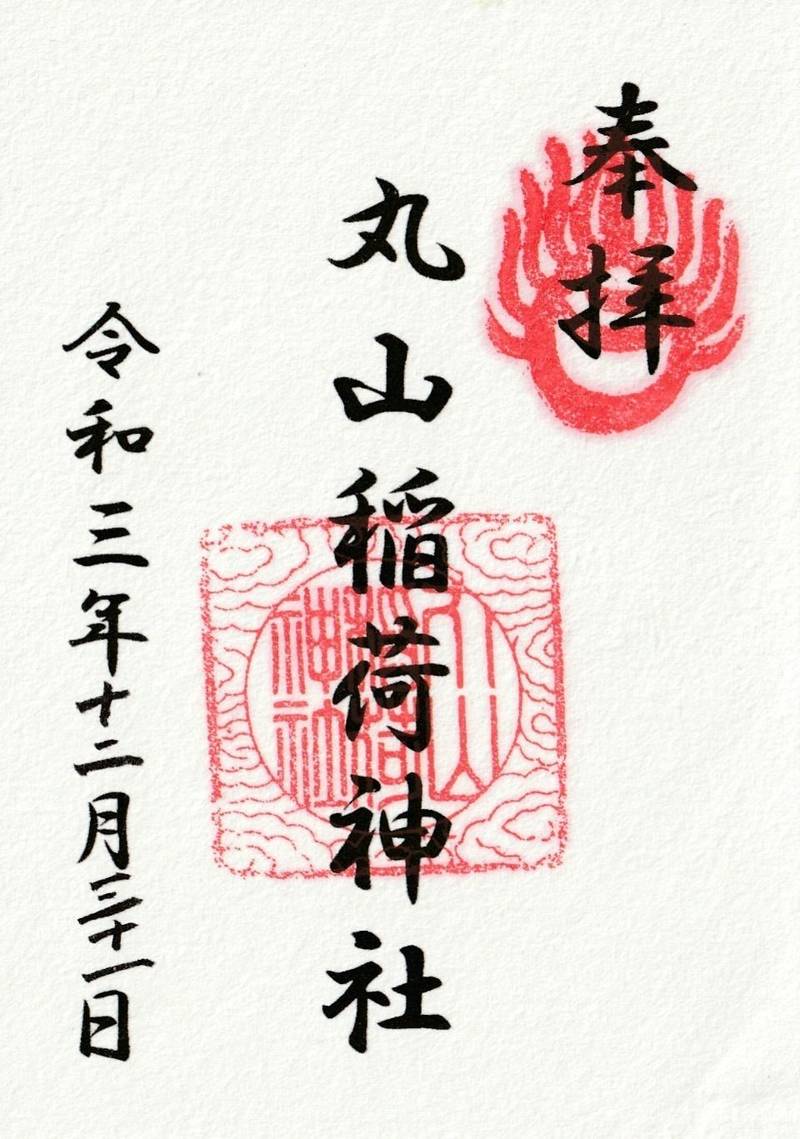 奉拝
丸山稲荷神社
令和三年十二月三十一日